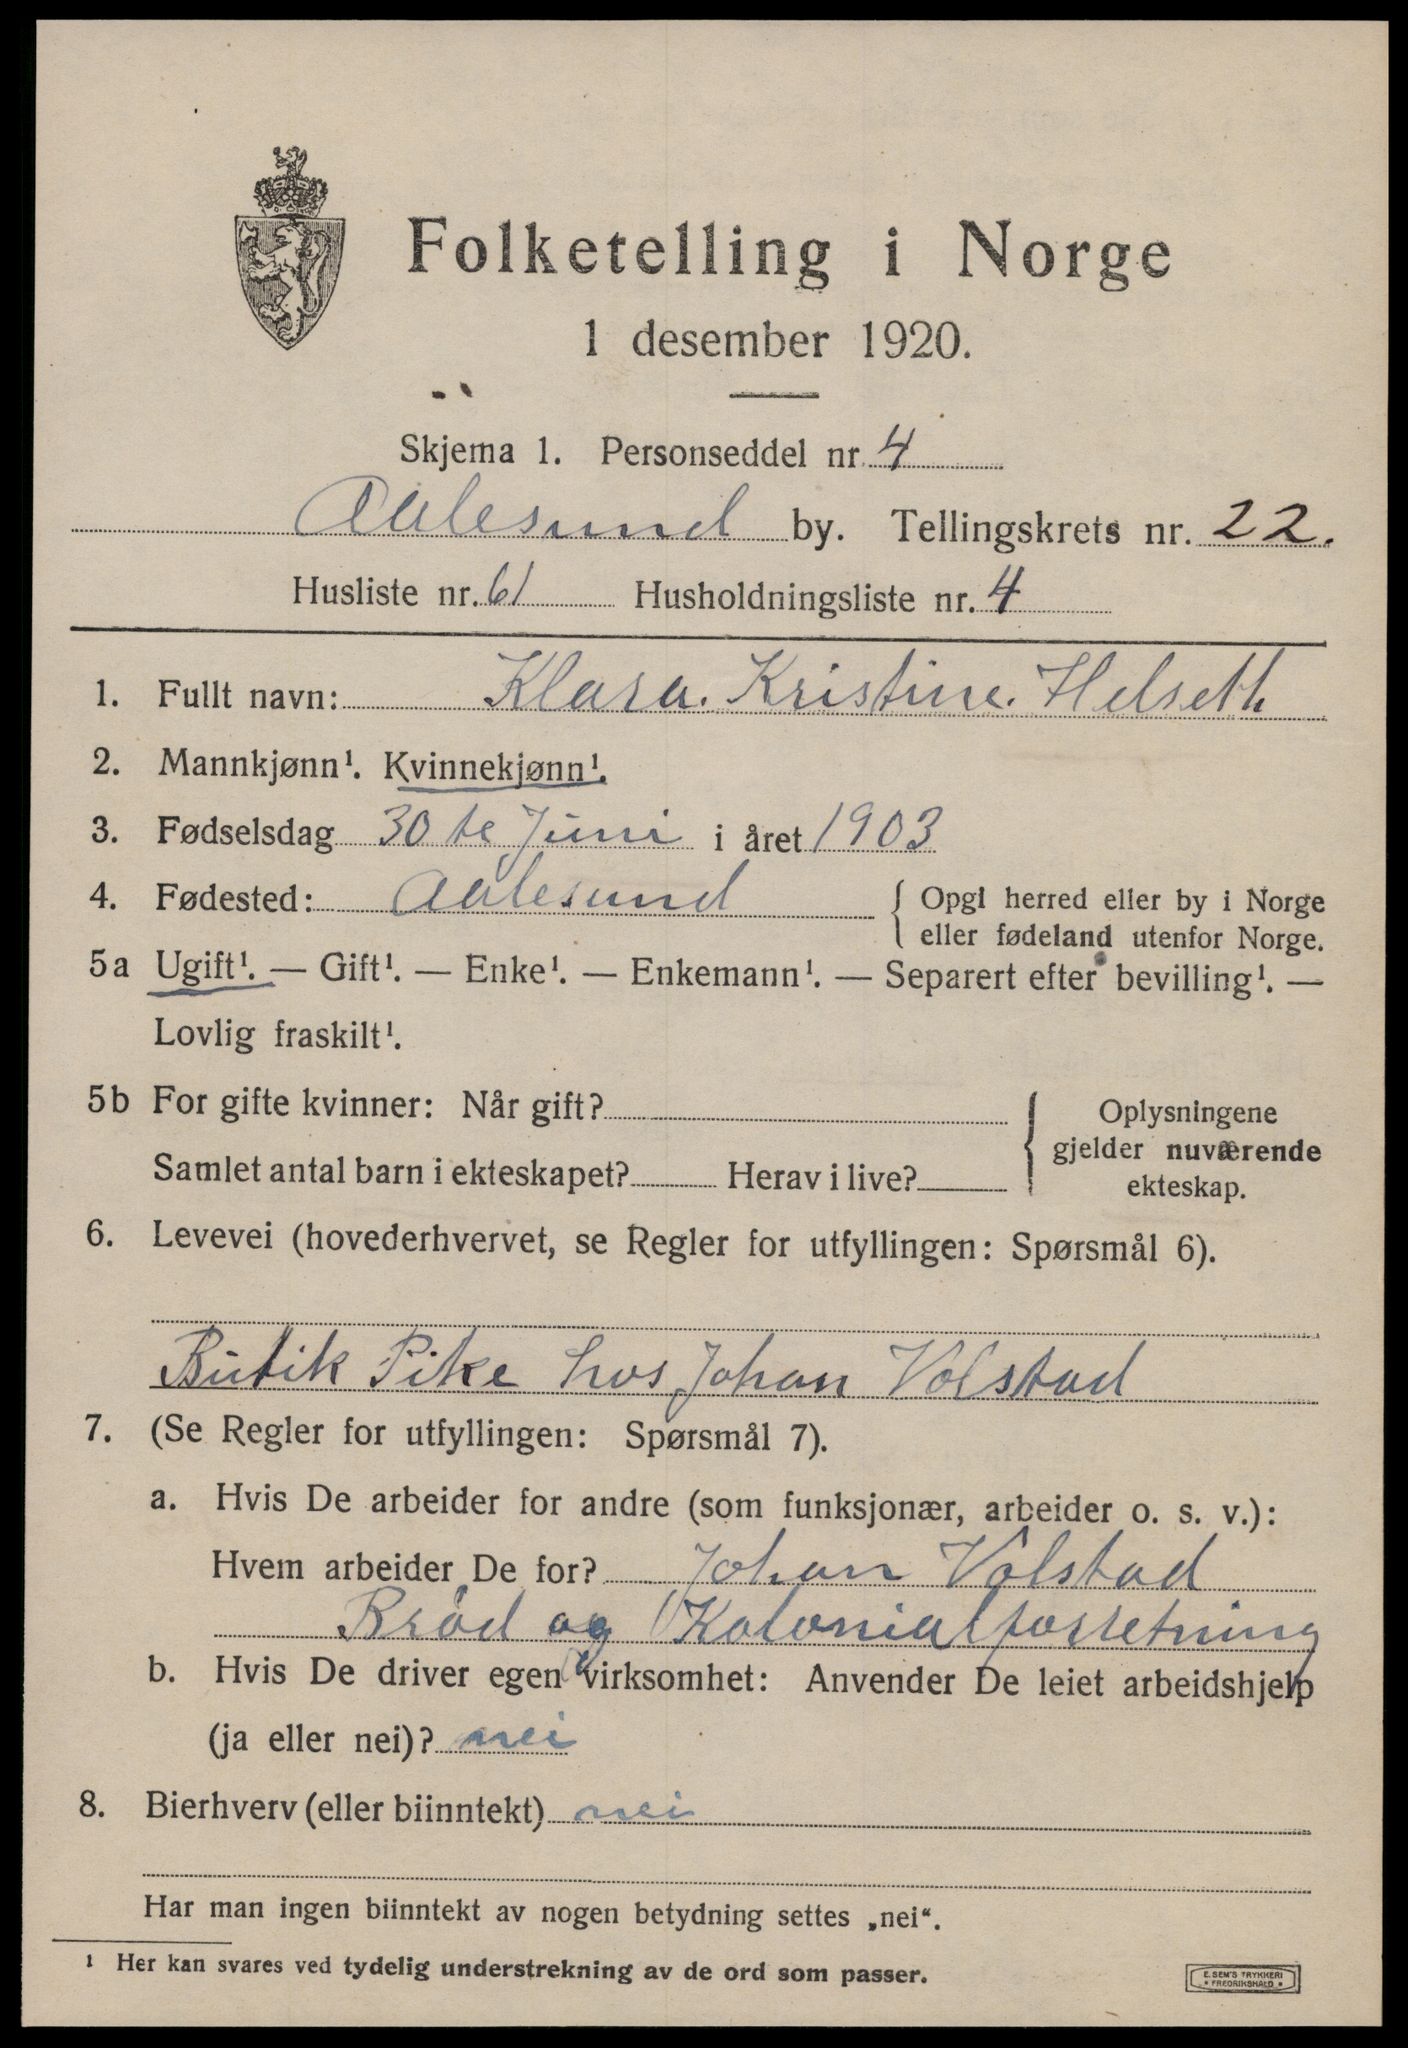 Folketelling i Norge
1 desember 1920.
Skjema 1. Personseddel nr. 4
Aalesund by. Tellingskrets nr. 22.
Husliste nr. 61 Husholdningsliste nr. 4
1. Fullt navn: Klara. Kristine. Helseth
2. Mannkjønn¹. Kvinnekjønn¹.
3. Fødselsdag 30te Juni i året 1903
4. Fødested: Aalesund { Opgi herred eller by i Norge
eller fødeland utenfor Norge.
5a Ugift¹. — Gift¹. — Enke¹. — Enkemann¹. — Separert efter bevilling¹. —
Lovlig fraskilt¹.
5b For gifte kvinner: Når gift? { Oplysningene
gjelder nuværende
Samlet antal barn i ekteskapet? Herav i live? ekteskap.
6. Levevei (hovederhvervet, se Regler for utfyllingen: Spørsmål 6).
Butik Pike hos Johan Volstad
7. (Se Regler for utfyllingen: Spørsmål 7).
a. Hvis De arbeider for andre (som funksjonær, arbeider o. s. v.):
Hvem arbeider De for? Johan Volstad
Brød og Kolonialforretning
b. Hvis De driver egen virksomhet: Anvender De leiet arbeidshjelp
(ja eller nei)? nei
8. Bierhverv (eller biinntekt) nei
Har man ingen biinntekt av nogen betydning settes „nei“.
¹ Her kan svares ved tydelig understrekning av de ord som passer.
E. SEM'S TRYKKERI
* FREDRIKSHALD *